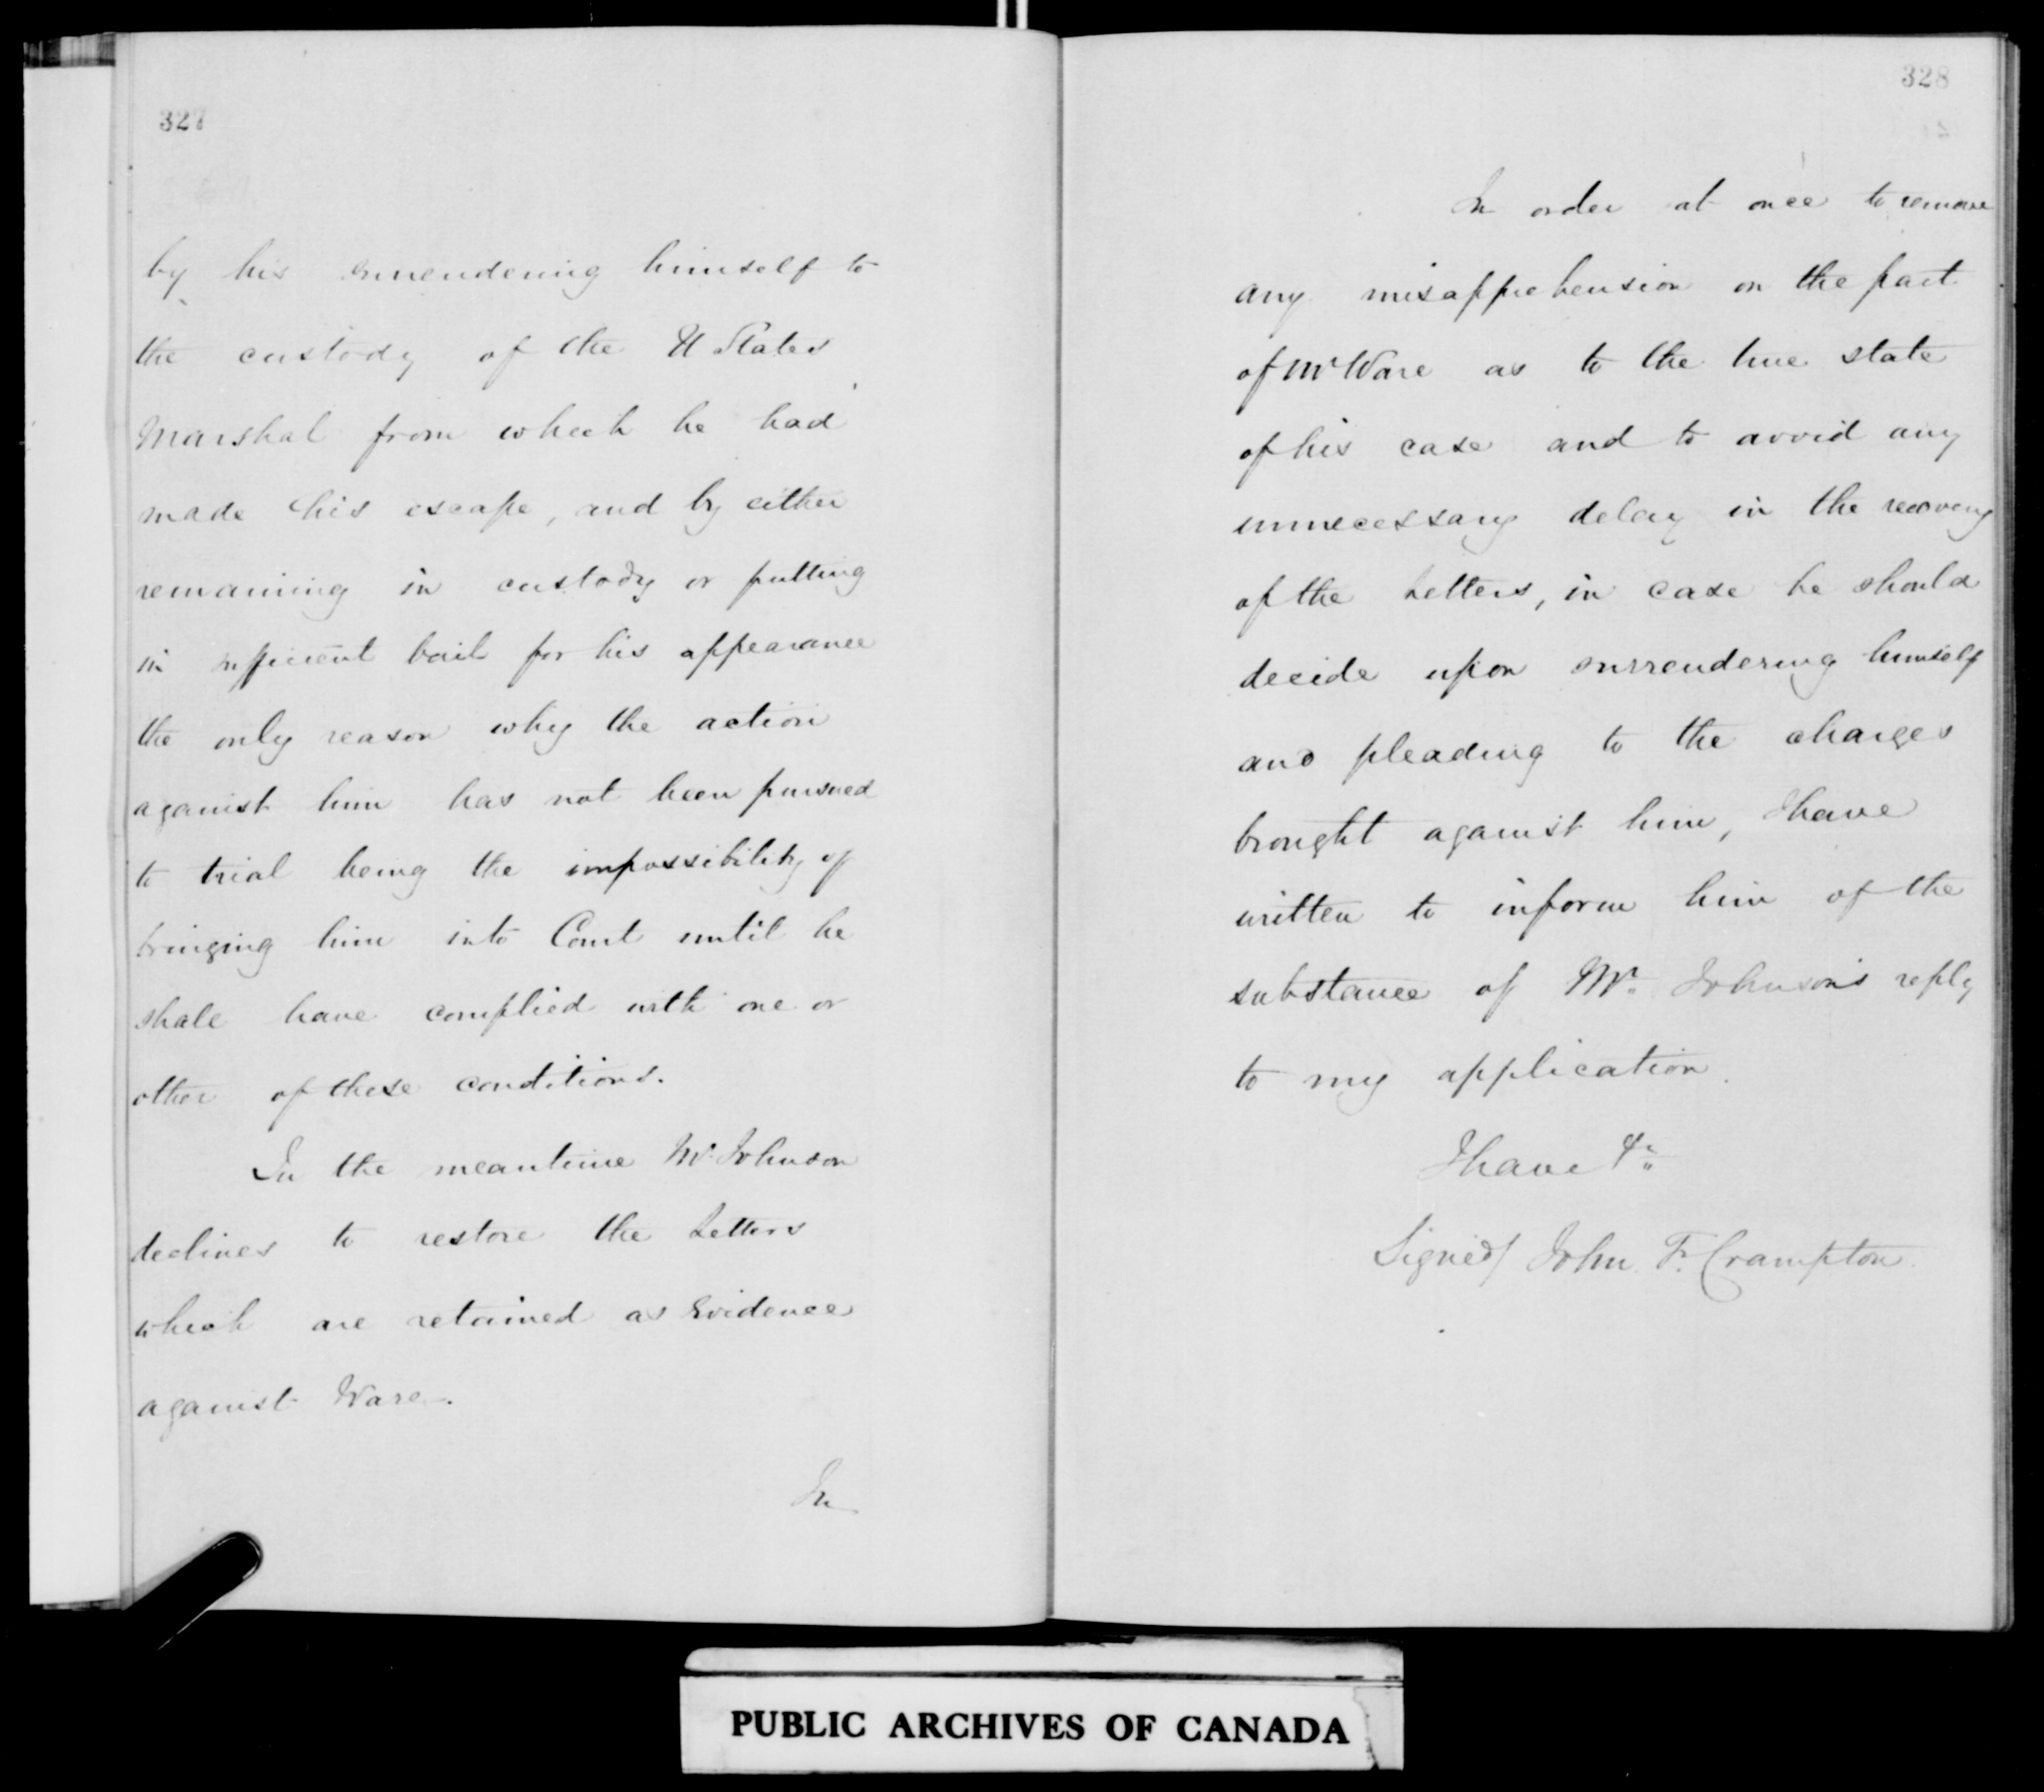 327
by his surrendering himself to
the custody of the U States
Marshal from which he had
made his escape, and by either
remaining in custody or putting
in sufficient bail for his appearance
the only reason why the action
against him has not been pursued
to trial being the impossibility of
bringing him into Court until he
shall have complied with one or
other of these conditions.
In the meantime Mr Johnson
declines to restore the Letters
which are retained as Evidence
against Ware.
In
328
In order at once to remove
any misapprehension on the part
of Mr Ware as to the true state
of his case and to avoid any
unnecessary delay in the recovery
of the Letters, in case he should
decide upon surrendering himself
and pleading to the charges
brought against him, I have
written to inform him of the
substance of Mr. Johnson's reply
to my application.
I have &c
Signed/ John F. Crampton
PUBLIC ARCHIVES OF CANADA